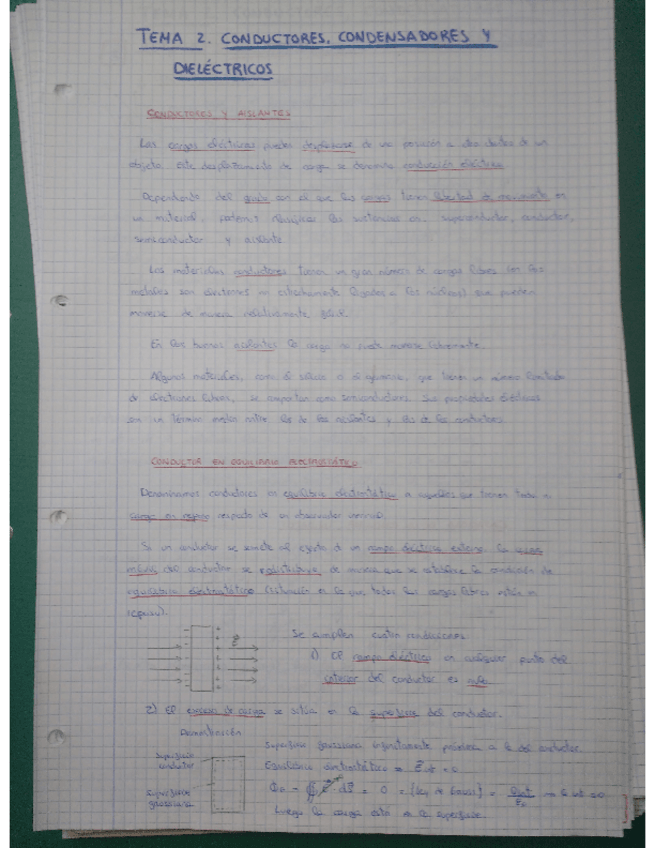 TEMA 2. CONDUCTORES, CONDENSADORES Y
DIELÉCTRICOS
CONDUCTORES Y AISLANTES
Las cargas eléctricas pueden desplazarse de una posición a otra dentro de un
objeto. Este desplazamiento de carga se denomina conducción eléctrica.
Dependiendo del grado con el que las cargas tienen libertad de movimiento en
un material, podemos clasificar las sustancias en: superconductor, conductor,
semiconductor y aislante
Los materiales conductores tienen un gran número de cargas libres (en los
metales son electrones no estrechamente ligados a los núcleos) que pueden
moverse de manera relativamente fácil.
En los buenos aislantes la carga no puede moverse libremente.
Algunos materiales, como el silicio o el germanio, que tienen un número limitado
de electrones libres, se comportan como semiconductores. Sus propiedades eléctricas
son un término medio entre las de los aislantes y las de los conductores
CONDUCTOR EN EQUILIBRIO ELECTROSTÁTICO
Denominamos conductores en equilibrio electrostático a aquellos que tienen toda su
carga en reposo respecto de un observador inercial.
Si un conductor se somete al efecto de un campo eléctrico externo, la carga
del conductor se redistribuye de manera que se establece la condición de
equilibrio electrostático (situación en la que todas las cargas libres están en
reposo).
Se cumplen cuatro condiciones
1) El campo eléctrico en cualquier punto del
interior del conductor es nulo
2) El exceso de carga se sitúa en la superficie del conductor.
Demostración
Superficie gaussiana infinitamente próxima a la del conductor.
Superficie
conductor
Equilibrio electrostático ⇒ E int = 0
Superficie
gaussiana
= 0 = (Ley de Gauss) = Q int / ε₀ ⇒ Q int = 0
Luego la carga está en la superficie